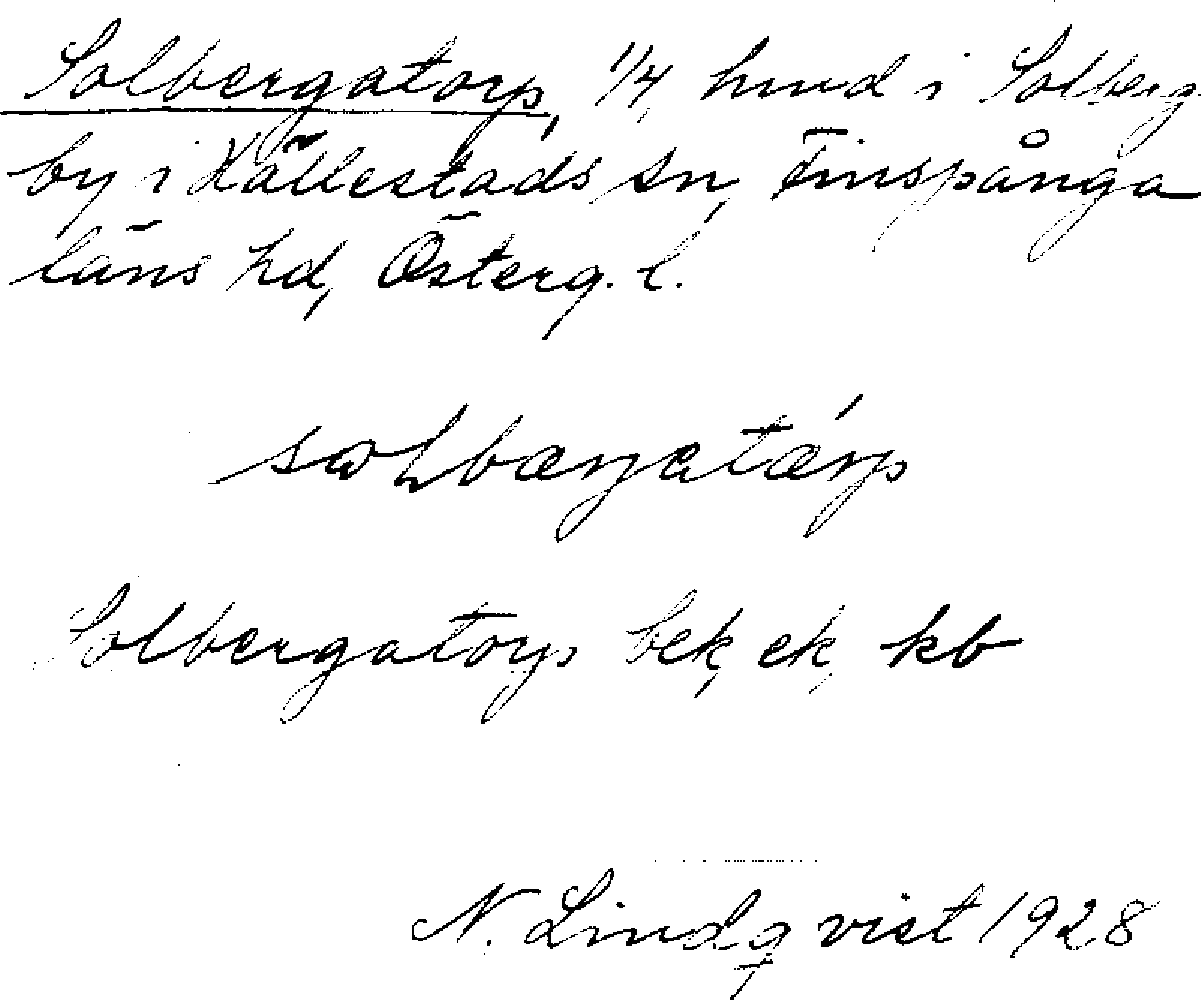 Solbergatorp, 1/4, hmd i Solberg
by i Hällestads sn, Finspånga
läns hd, Österg. l.
Solbergatorp bek, ek, kb
N. Lindqvist 1928